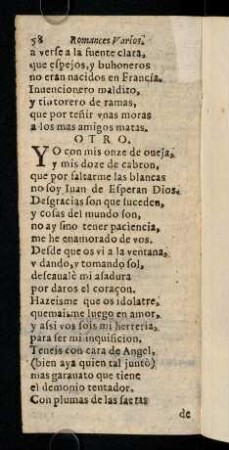 58 Romances Varios.
a verse a la fuente clara,
que espejos, y buhoneros
no eran nacidos en Francia.
Invencionero maldito,
y tintorero de ramas,
que por teñir vnas moras
a los mas amigos matas.
OTRO.
YO con mis onze de oueja,
y mis doze de cabron,
que por faltarme las blancas
no soy Iuan de Esperan Dios.
Desgracias son que suceden,
y cosas del mundo son,
no ay sino tener paciencia,
me he enamorado de vos.
Desde que os vi a la ventana,
v dando, y tomando sol,
descaualè mi asadura
por daros el coraçon.
Hazeisme que os idolatre,
quemaisme luego en amor,
y assi vos sois mi herreria,
para ser mi inquisicion.
Teneis con cara de Angel,
(bien aya quien tal juntò)
mas garauato que tiene
el demonio tentador.
Con plumas de las saetas
de